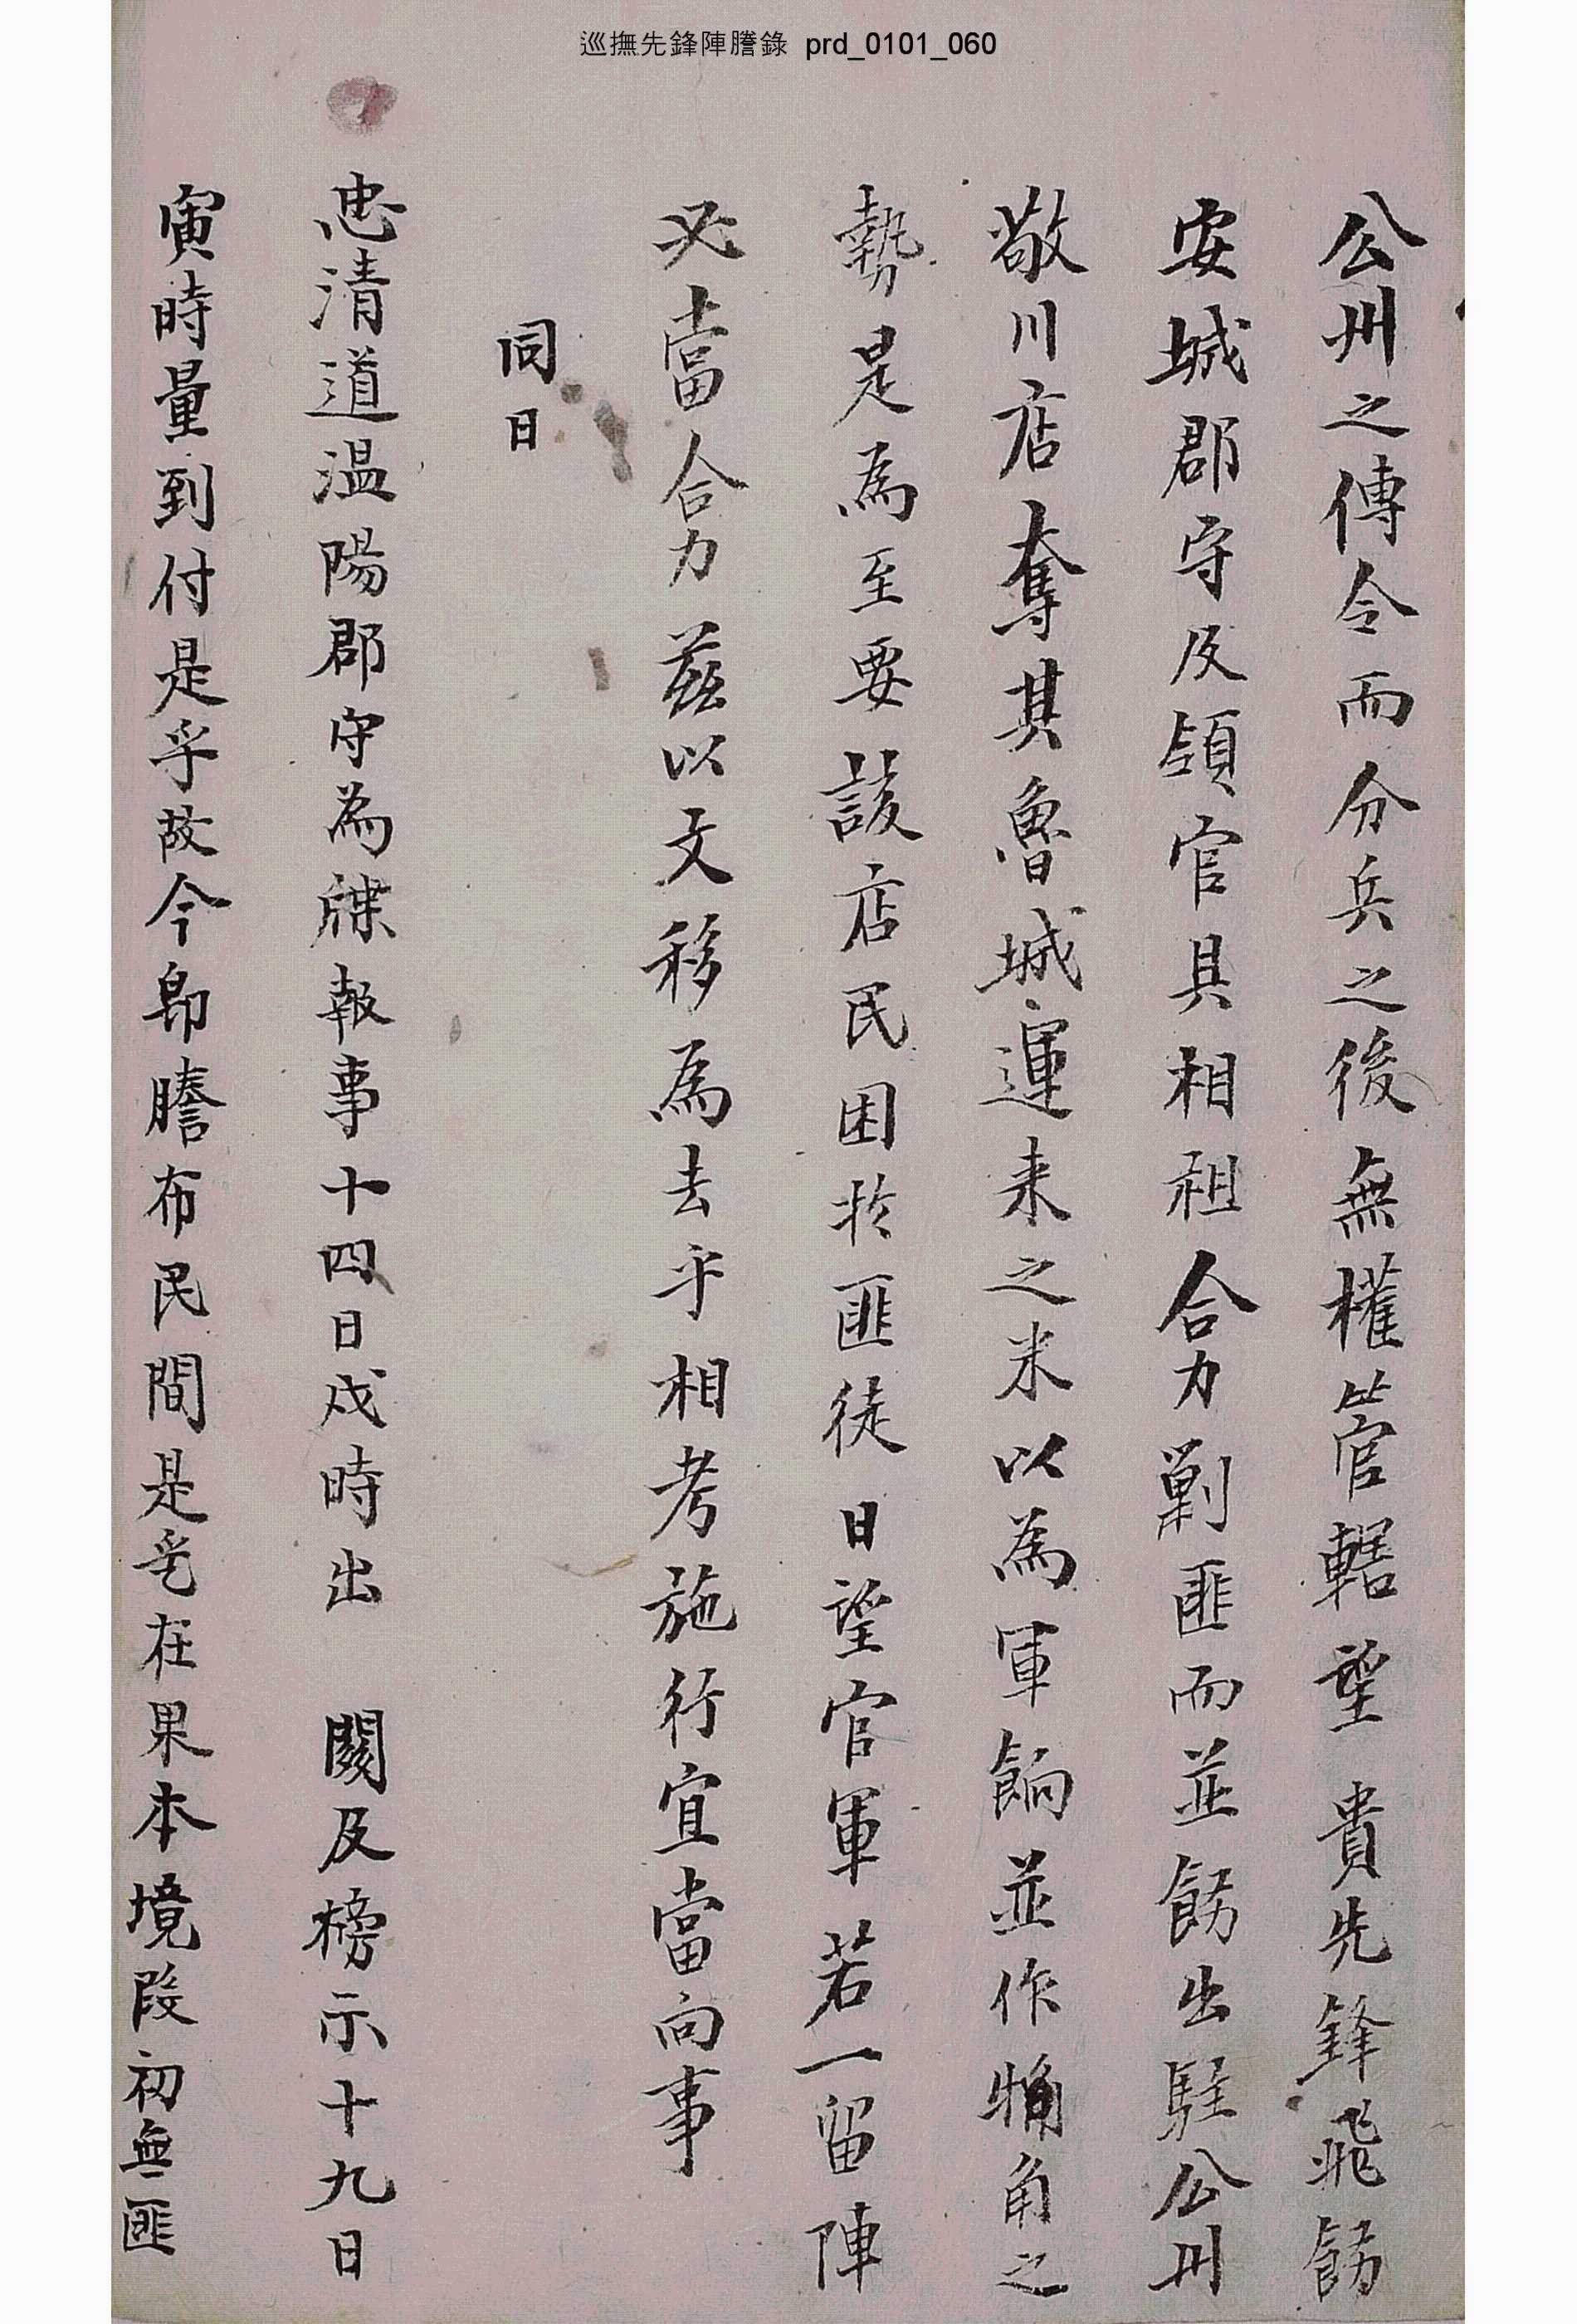 巡撫先鋒陣謄錄 prd_0101_060
公州之傳令而分兵之後無權管轄望 貴先鋒飛飭
安城郡守及領官具相祖合力剿匪而並飭出駐公州
敬川店奪其魯城運来之米以為軍餉並作犄角之
勢是為至要該店民困於匪徒日望官軍若一留陣
必當合力茲以文移為去乎相考施行宜當向事
同日
忠清道温陽郡守為牒報事十四日戌時出 關及榜示十九日
寅時量到付是乎故今卽謄布民間是乎在果本境段初無匪